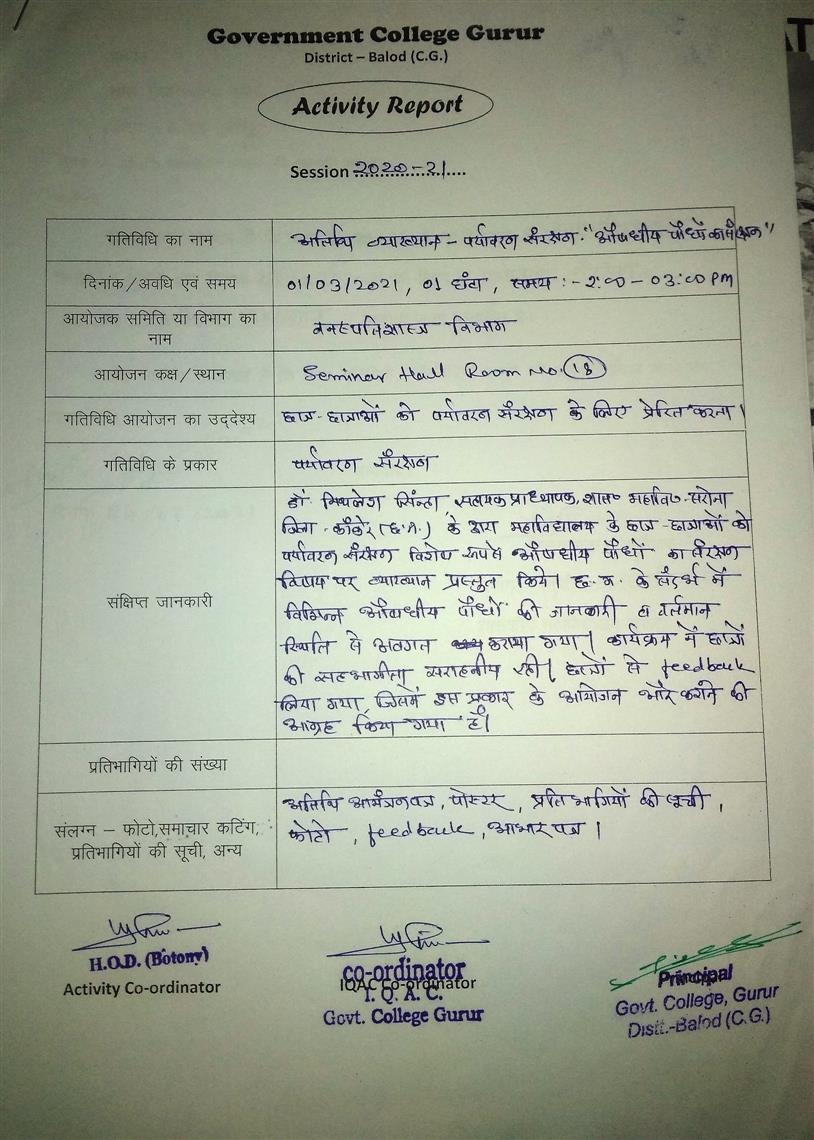 Government College Gurur
District – Balod (C.G.)
Activity Report
Session 2020-21....
गतिविधि का नाम
अतिथि व्याख्यान - पर्यावरन संरक्षन "औषधीय पौधों का संरक्षन"
दिनांक/अवधि एवं समय
01/03/2021, 01 घंटा, समय :- 2:00 - 03:00 PM
आयोजक समिति या विभाग का
नाम
वनस्पतिशास्त्र विभाग
आयोजन कक्ष/स्थान
Seminar Hall Room No. 18
गतिविधि आयोजन का उद्देश्य
छात्र-छात्राओं को पर्यावरन संरक्षन के लिए प्रेरित करना।
गतिविधि के प्रकार
पर्यावरन संरक्षन
संक्षिप्त जानकारी
डॉ. मिथलेश सिन्हा, सहायक प्राध्यापक, शास० महावि० सरोना
जिला - काँकेर (छ.ग.) के द्वारा महाविद्यालय के छात्र-छात्राओं को
पर्यावरन संरक्षन विशेष रूप से औषधीय पौधों का संरक्षन
विषय पर व्याख्यान प्रस्तुत किये। छ.ग. के संदर्भ में
विभिन्न औषधीय पौधों की जानकारी व वर्तमान
स्थिति से अवगत कराया गया। कार्यक्रम में छात्रों
की सहभागीता सराहनीय रही। छात्रों से feedback
लिया गया, जिसमें इस प्रकार के आयोजन और कराने की
आग्रह किया गया है।
प्रतिभागियों की संख्या
संलग्न – फोटो,समाचार कटिंग,
प्रतिभागियों की सूची, अन्य
अतिथि आमंत्रनपत्र, पोस्टर, प्रतिभागियों की सूची,
फोटो, feedback, आभार पत्र।
H.O.D. (Botony)
Activity Co-ordinator
co-ordinator
IQAC Co-ordinator
I. Q. A. C.
Govt. College Gurur
Principal
Principal
Govt. College, Gurur
Distt.-Balod (C.G.)